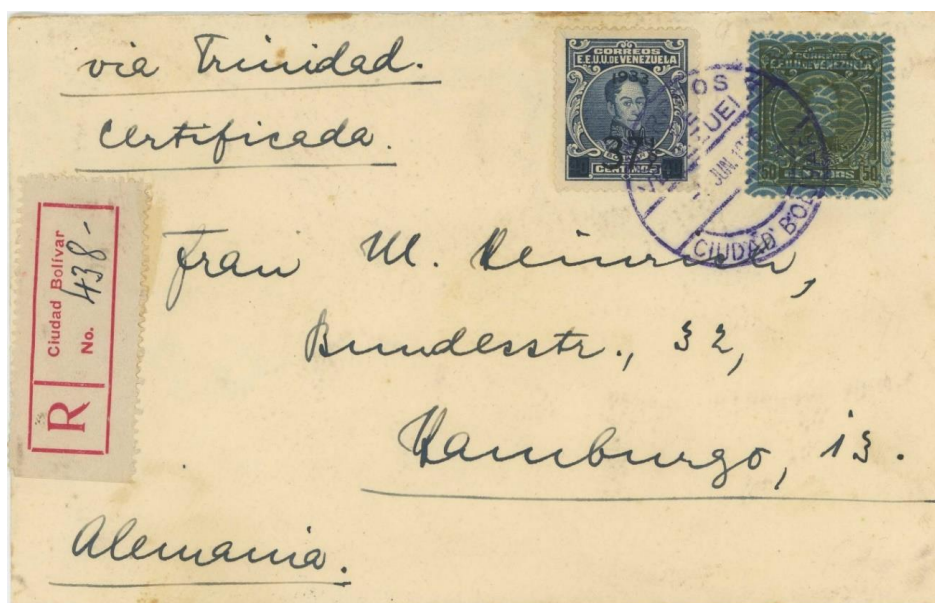 via Trinidad.
Certificada.
CORREOS
E.E.U.U. DE VENEZUELA
1933
CENTIMOS
CORREOS
E.E.U.U. DE VENEZUELA
50 50
JUN.
CIUDAD BOLIVAR
R
Ciudad Bolívar
No. 438-
Frau M. Heinrich,
Bundesstr., 32,
Hamburgo, 13.
Alemania.